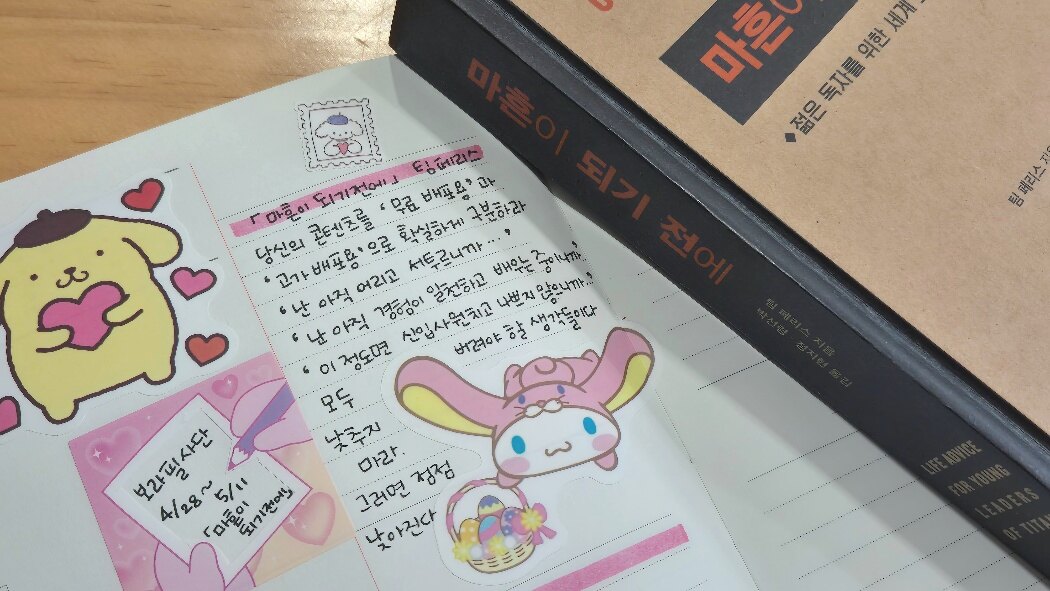 「마흔이 되기전에」 팀페리스
당신의 콘텐츠를 '무료 배포용'과
'고가 배포용'으로 확실하게 구분하라
'난 아직 어리고 서투르니까…'
'난 아직 경험이 일천하고 배우는 중이니까…'
'이 정도면 신입사원치고 나쁘지 않으니까…'
모두 버려야 할 생각들이다
낮추지
마라
그러면 정점
낮아진다
보라필사단
4/28~
5/11
「마흔이
되기전에」
마흔이 되기 전에
팀 페리스 지음
박선령·정지현 옮김
LIFE ADVICE
FOR YOUNG
LEADERS
OF TITA
마흔이
◆ 젊은 독자를 위한 세계
팀 페리스 지